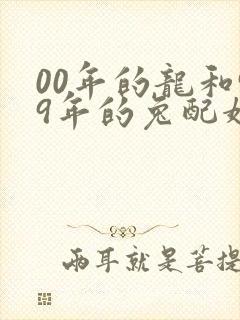 00年的龍和
9年的兔配
兩耳就是菩提